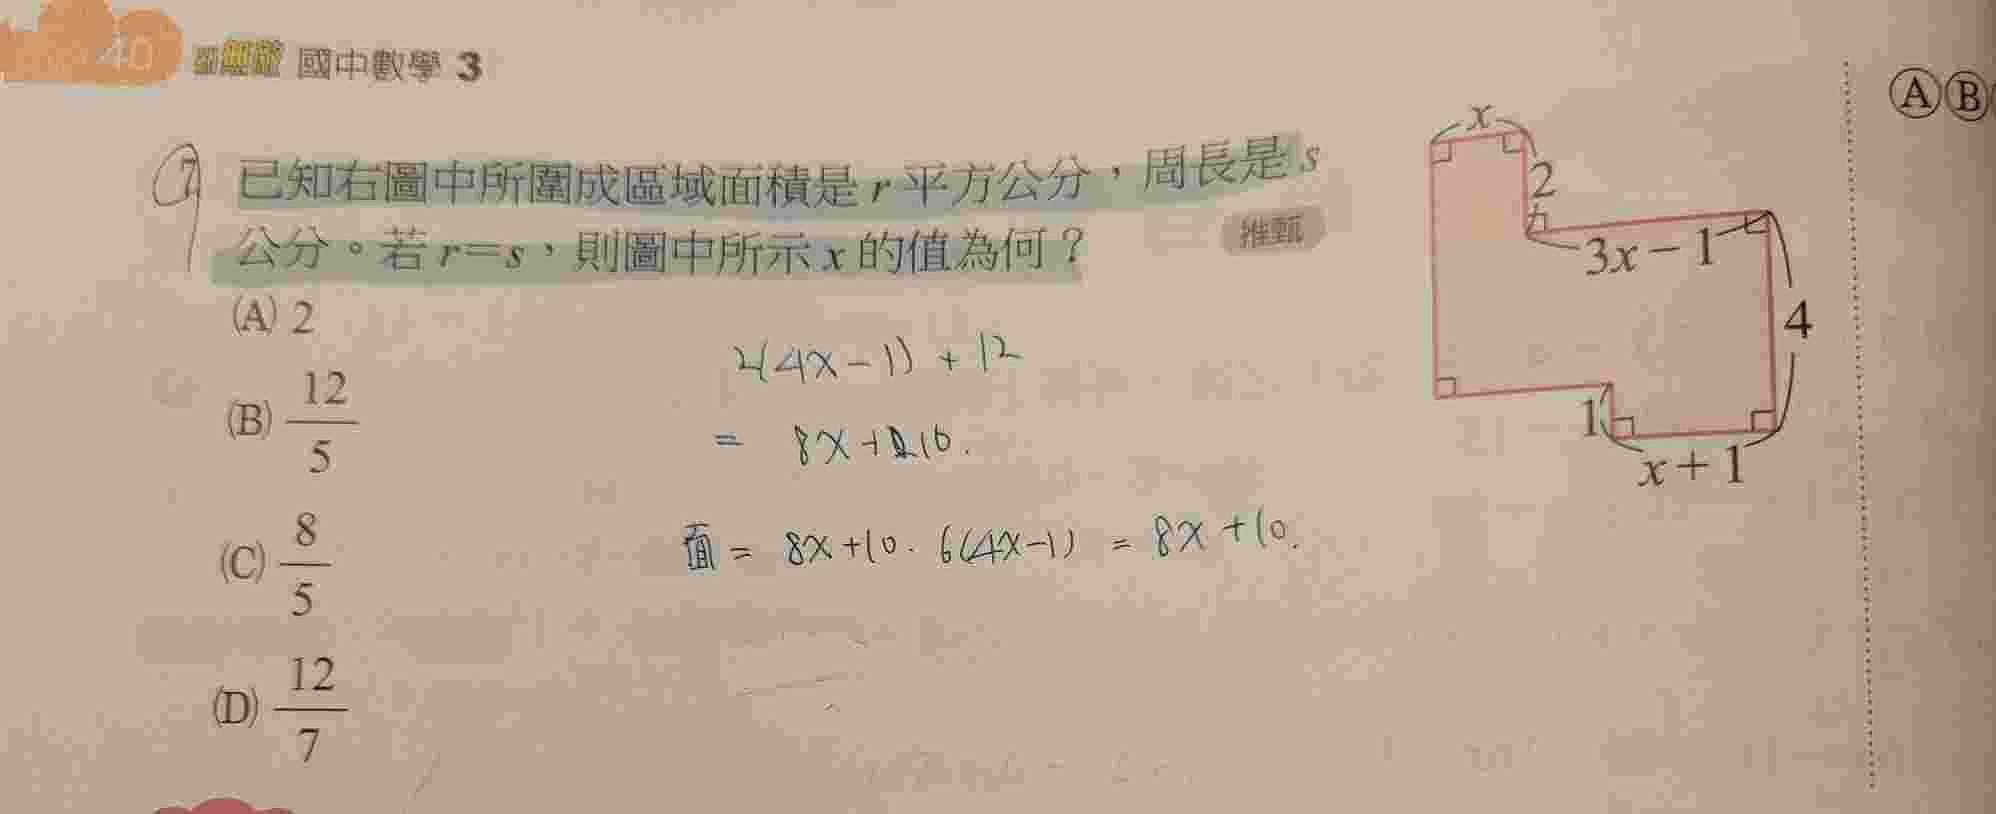 40
國中數學 3
A B
7 已知右圖中所圍成區域面積是 r 平方公分，周長是 s
公分。若 r=s，則圖中所示 x 的值為何？
推甄
(A) 2
(B) 12/5
(C) 8/5
(D) 12/7
x
2
3x-1
4
1
x+1
2(4x-1) + 12
= 8x+10.
面 = 8x+10. 6(4x-1) = 8x+10.